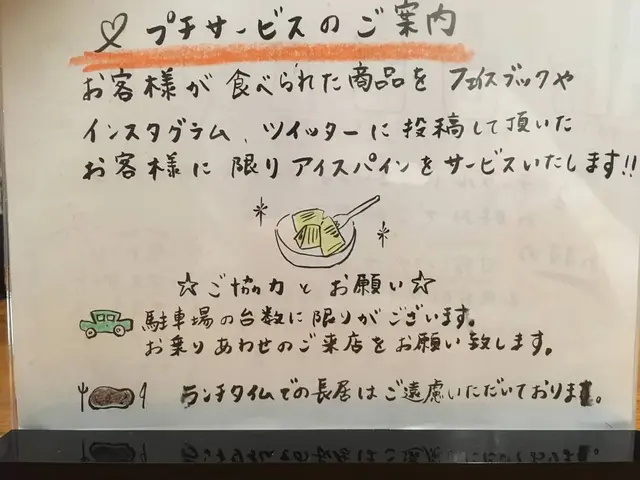 ♡ プチサービスのご案内
お客様が食べられた商品を フェイスブックや
インスタグラム、ツイッターに投稿して頂いた
お客様に限りアイスパインをサービスいたします!!
☆ご協力とお願い☆
駐車場の台数に限りがございます。
お乗りあわせのご来店をお願い致します。
ランチタイムでの長居はご遠慮いただいております。